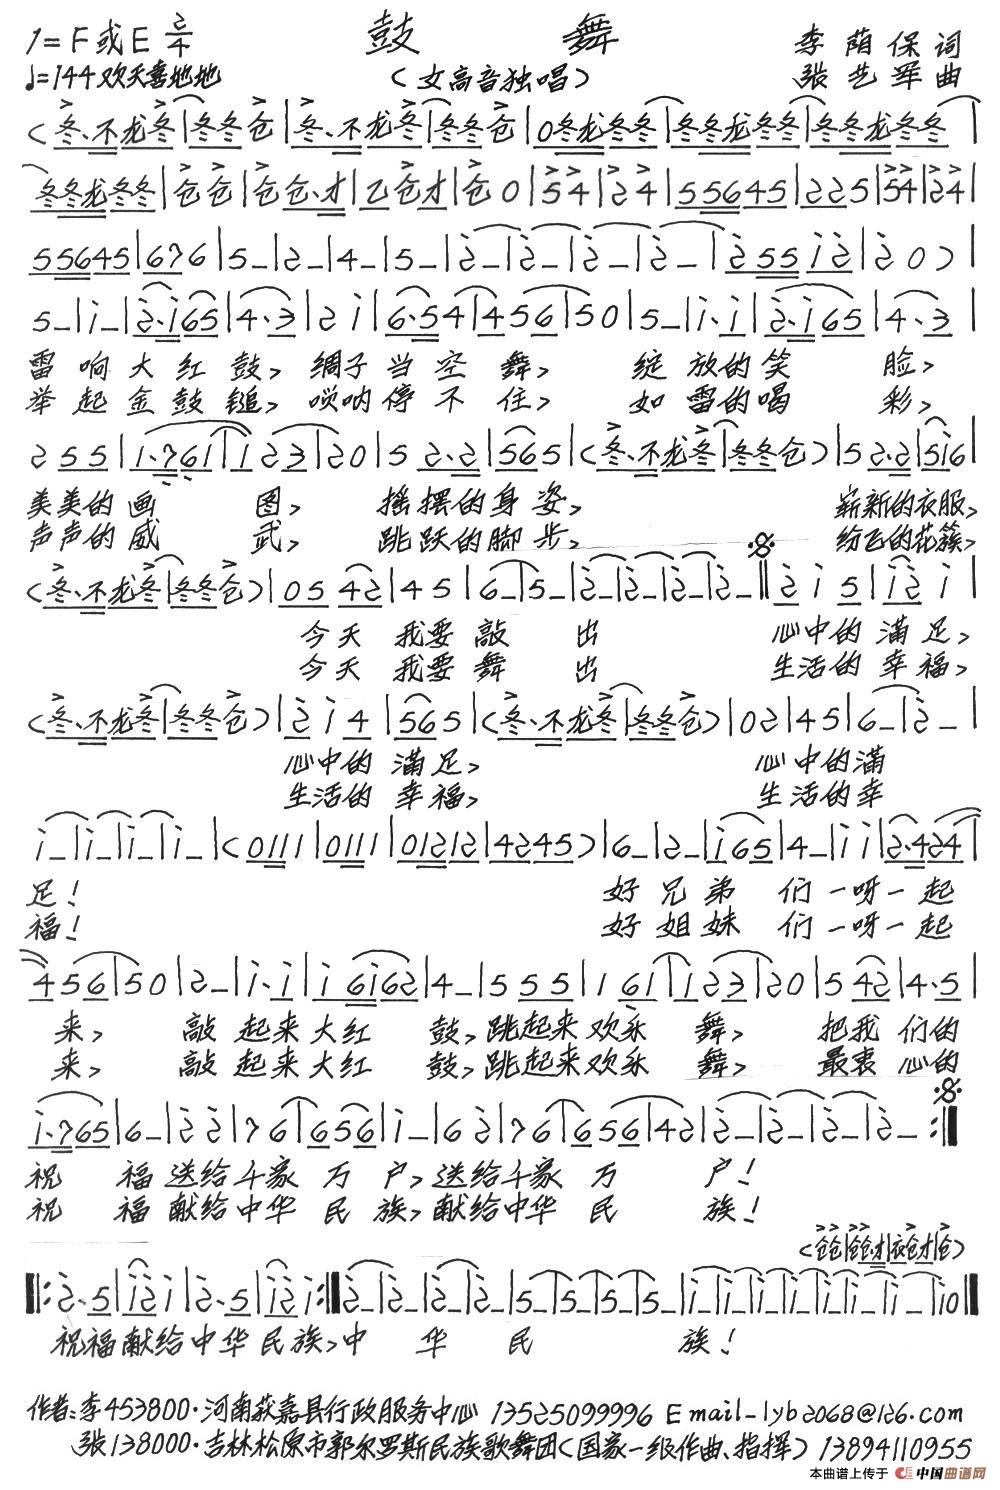 鼓 舞
1=F或E 2/4
李荫保 词
♩=144 欢天喜地地
(女高音独唱)
张艺军 曲
(冬、不龙冬|冬冬仓|冬、不龙冬|冬冬仓|0冬龙冬冬|冬冬龙冬冬|冬冬龙冬冬|
冬冬龙冬冬|仓仓|仓仓、才|乙仓才|仓0|54|24|55645|225|54|24|
55645|676|5-|2-|4-|5-|2-|2-|2-|2-|255 12|20)|
5-|1-|2·165|4·3|21|6·54|456|50|5-|1·1|2·165|4·3|
雷响大红鼓, 绸子当空舞, 绽放的笑脸,
举起金鼓鎚, 唢呐停不住, 如雷的喝彩,
255|1·761|123|20|5 2·2|565|(冬、不龙冬|冬冬仓)|5 2·2|516|
美美的画图, 摇摆的身姿, 崭新的衣服,
声声的威武, 跳跃的脚步, 纷飞的花簇,
(冬、不龙冬|冬冬仓)|05 42|45|6-|5-|2-|2-|2-|2-‖215|121|
今天我要敲出 心中的满足,
今天我要舞出 生活的幸福,
(冬、不龙冬|冬冬仓)|214|565|(冬、不龙冬|冬冬仓)|02|45|6-|2-|
心中的满足, 心中的满
生活的幸福, 生活的幸
1-|1-|1-|1-|(0111|0111|01212|4245)|6-|2-|165|4-|11|2·424|
足! 好兄弟们一呀一起
福! 好姐妹们一呀一起
456|50|2-|1·1|1 6162|4-|555|161|123|20|5 42|4·5|
来, 敲起来大红鼓,跳起来欢乐舞, 把我们的
来, 敲起来大红鼓,跳起来欢乐舞, 最衷心的
1·765|6-|22|76|656|1-|62|76|656|42|2-|2-|2-|2-:‖
祝福送给千家万户,送给千家万户!
祝福献给中华民族,献给中华民族!
(仓仓|仓仓、才|衣仓才|仓)
‖:2·5|121|2·5|121:‖2-|2-|2-|2-|5-|5-|5-|5-|1-|1-|1-|1-|1-|1-|10‖
祝福献给中华民族,中华民族!
作者:李453800·河南获嘉县行政服务中心 13525099996 Email-lyb2068@126.com
张138000·吉林松原市郭尔罗斯民族歌舞团(国家一级作曲、指挥) 13894110955
本曲谱上传于 中国曲谱网